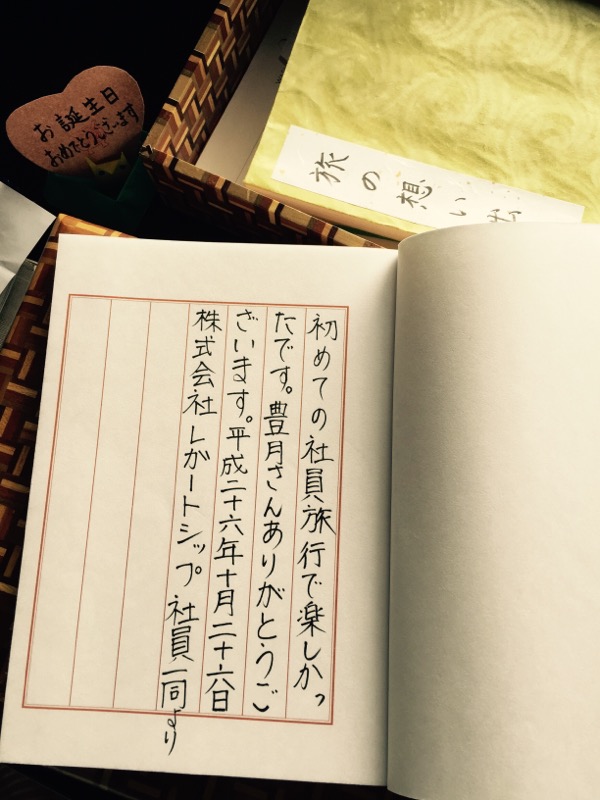 お誕生日
おめでとうございます
旅の想い出
初めての社員旅行で楽しかっ
たです。豊月さんありがとうご
ざいます。平成二十六年十月二十六日
株式会社レガートシップ 社員一同より